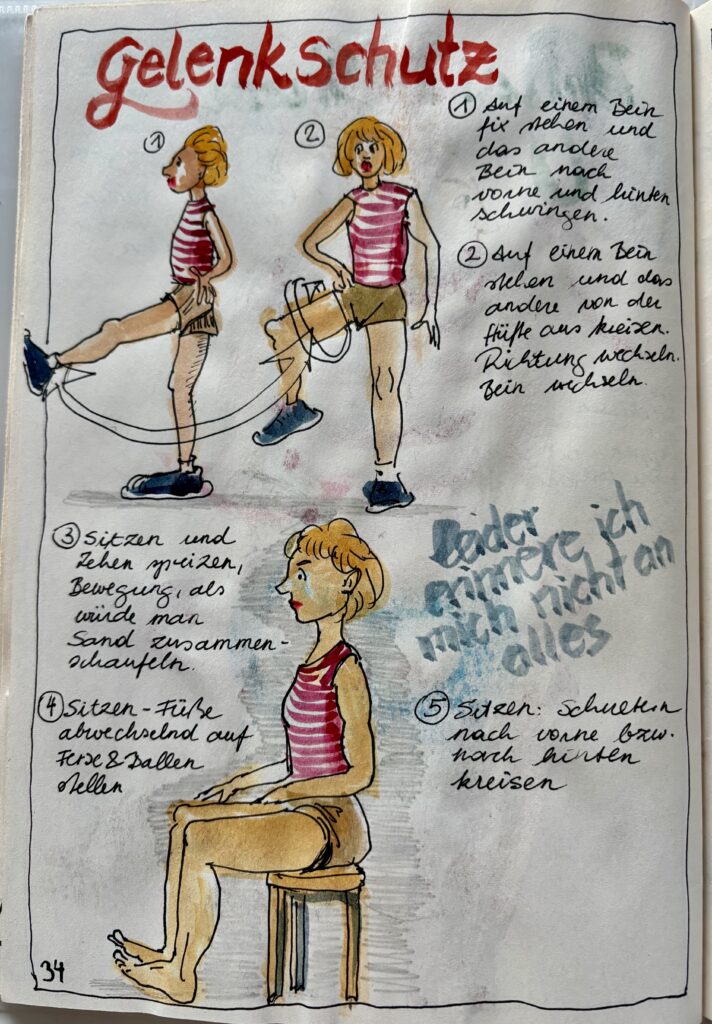 Gelenkschutz
1
2
① Auf einem Bein
fix stehen und
das andere
Bein nach
vorne und hinten
schwingen.
② Auf einem Bein
stehen und das
andere von der
Hüfte aus kreisen.
Richtung wechseln.
Bein wechseln.
③ Sitzen und
Zehen spreizen,
Bewegung, als
würde man
Sand zusammen-
schaufeln.
Leider
erinnere ich
mich nicht an
alles
④ Sitzen - Füße
abwechselnd auf
Ferse & Ballen
stellen
⑤ Sitzen: Schultern
nach vorne bzw.
nach hinten
kreisen
34